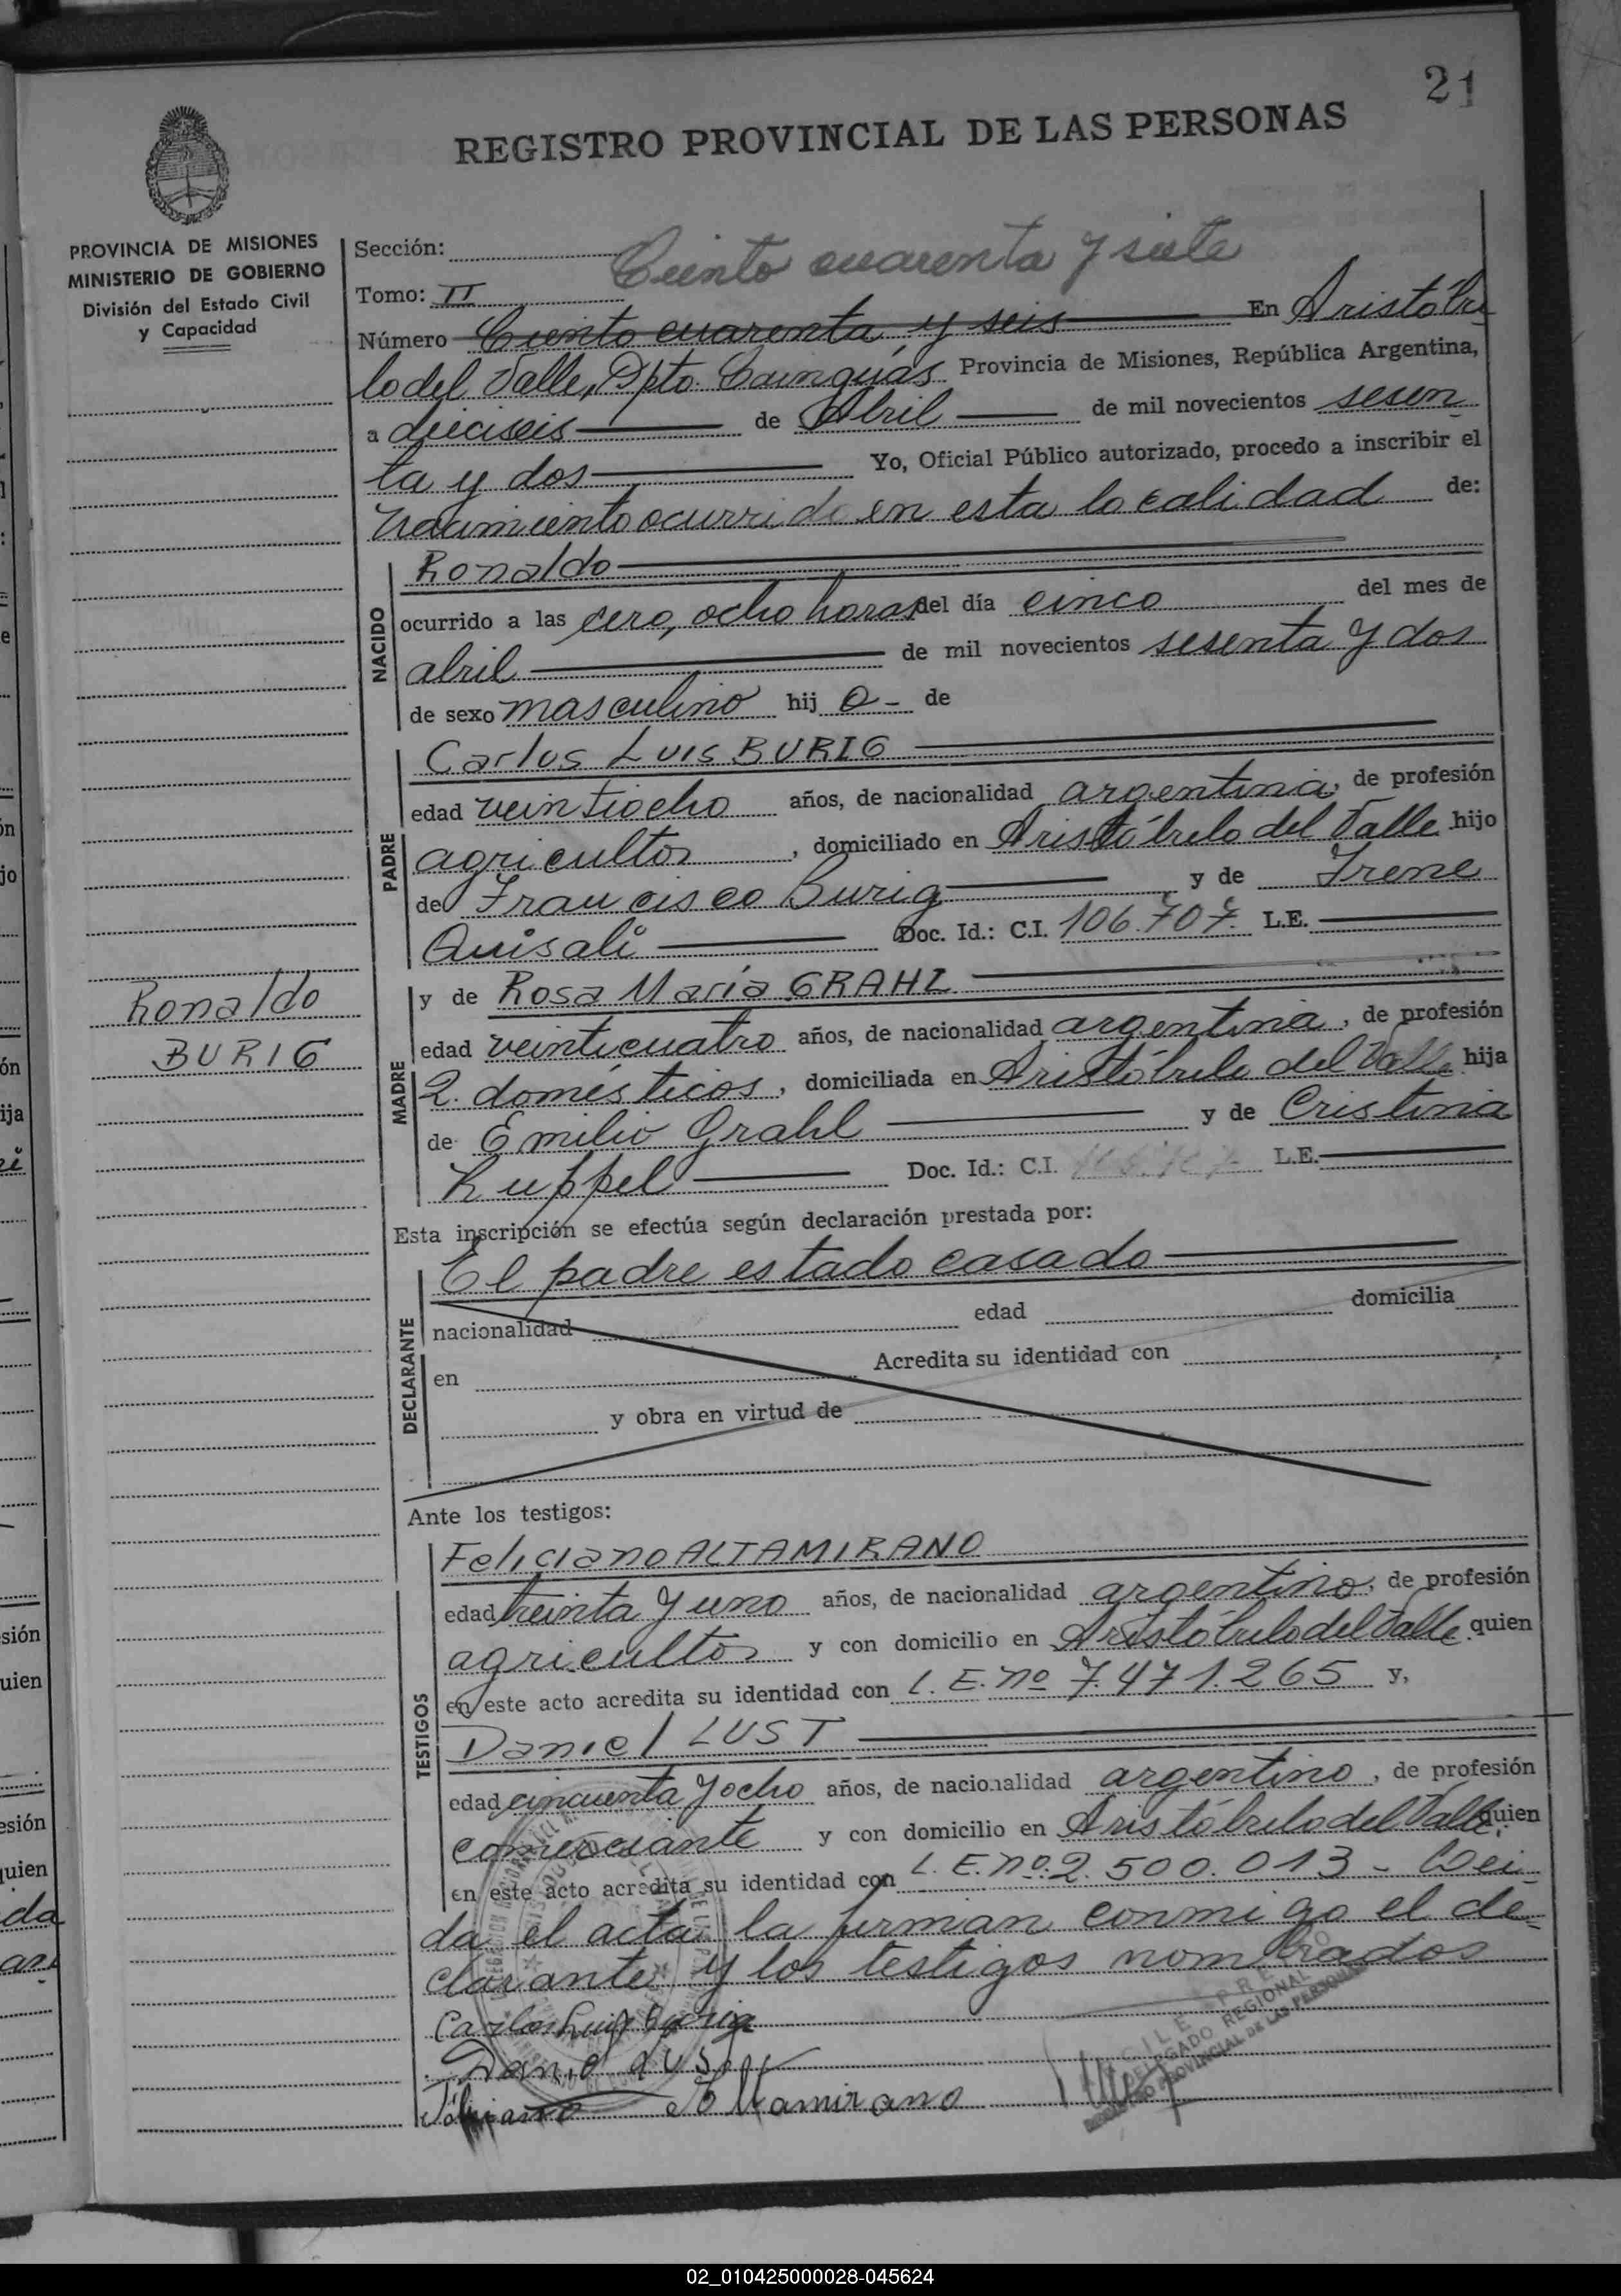 21
REGISTRO PROVINCIAL DE LAS PERSONAS
PROVINCIA DE MISIONES
MINISTERIO DE GOBIERNO
División del Estado Civil
y Capacidad
Sección:
Ciento cuarenta y siete
Tomo: II
Número Ciento cuarenta y seis En Aristóbu
lo del Valle, Dpto. Cainguás Provincia de Misiones, República Argentina,
a dieciseis de Abril de mil novecientos sesen
ta y dos Yo, Oficial Público autorizado, procedo a inscribir el
nacimiento ocurrido en esta localidad de:
NACIDO
Ronaldo
ocurrido a las cero, ocho horas del día cinco del mes de
abril de mil novecientos sesenta y dos
de sexo masculino hij o - de
PADRE
Carlos Luis BURIG
edad veintiocho años, de nacionalidad argentina, de profesión
agricultor, domiciliado en Aristóbulo del Valle hijo
de Francisco Burig y de Irene
Quisali Doc. Id.: C.I. 106.707. L.E.
Ronaldo
BURIG
MADRE
y de Rosa María GRAHL
edad veinticuatro años, de nacionalidad argentina, de profesión
Q. domésticos, domiciliada en Aristóbulo del Valle hija
de Emilio Grahl y de Cristina
Ruppel Doc. Id.: C.I. L.E.
Esta inscripción se efectúa según declaración prestada por:
DECLARANTE
El padre estado casado
nacionalidad edad domicilia
en Acredita su identidad con
y obra en virtud de
Ante los testigos:
TESTIGOS
Feliciano ALTAMIRANO
edad treinta y uno años, de nacionalidad argentino, de profesión
agricultor y con domicilio en Aristóbulo del Valle quien
en este acto acredita su identidad con L. E. nº 7.471.265 y,
Daniel LUST
edad cincuenta y ocho años, de nacionalidad argentino, de profesión
comerciante y con domicilio en Aristóbulo del Valle, quien
en este acto acredita su identidad con L. E. nº: 2.500.013 - Leí
da el acta la firman conmigo el de
clarante y los testigos nombrados
Carlos Luis Burig
Daniel Lust
Altamirano
DELEGADO REGIONAL
REGISTRO PROVINCIAL DE LAS PERSONAS
02_010425000028-045624